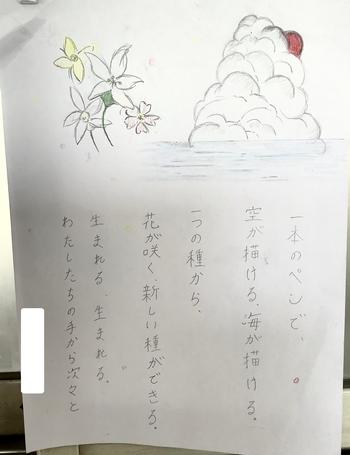 一本のペンで、
空が描ける、海が描ける。
一つの種から、
花が咲く、新しい種ができる。
生まれる、生まれる、
わたしたちの手から次々と